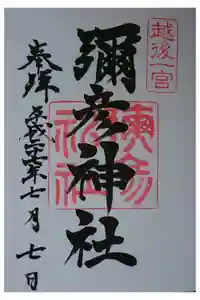 越後一宮
彌彦神社
奉拝
平成二十六年七月七日